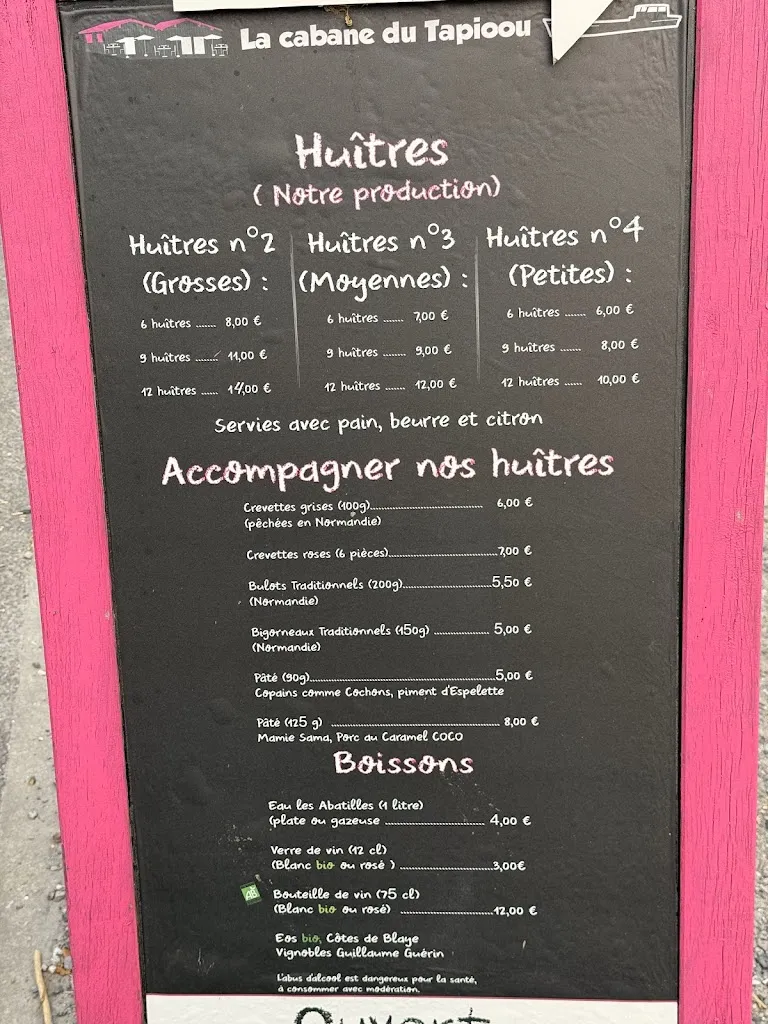 La cabane du Tapioou
Huîtres
( Notre production)
Huîtres n°2
(Grosses) :
6 huîtres ...... 8,00 €
9 huîtres ...... 11,00 €
12 huîtres ..... 14,00 €
Huîtres n°3
(Moyennes) :
6 huîtres ...... 7,00 €
9 huîtres ...... 9,00 €
12 huîtres ...... 12,00 €
Huîtres n°4
(Petites) :
6 huîtres ...... 6,00 €
9 huîtres ...... 8,00 €
12 huîtres ...... 10,00 €
Servies avec pain, beurre et citron
Accompagner nos huîtres
Crevettes grises (100g)........ 6,00 €
(pêchées en Normandie)
Crevettes roses (6 pièces)........7,00 €
Bulots Traditionnels (200g)........5,50 €
(Normandie)
Bigorneaux Traditionnels (150g) ........ 5,00 €
(Normandie)
Pâté (90g)........5,00 €
Copains comme Cochons, piment d'Espelette
Pâté (125 g) ........ 8,00 €
Mamie Sama, Porc au Caramel COCO
Boissons
Eau les Abatilles (1 litre)
(plate ou gazeuse ........ 4,00 €
Verre de vin (12 cl)
(Blanc bio ou rosé ) ........3,00€
AB
Bouteille de vin (75 cl)
(Blanc bio ou rosé) ........12,00 €
Eos bio, Côtes de Blaye
Vignobles Guillaume Guérin
L'abus d'alcool est dangereux pour la santé,
à consommer avec modération.